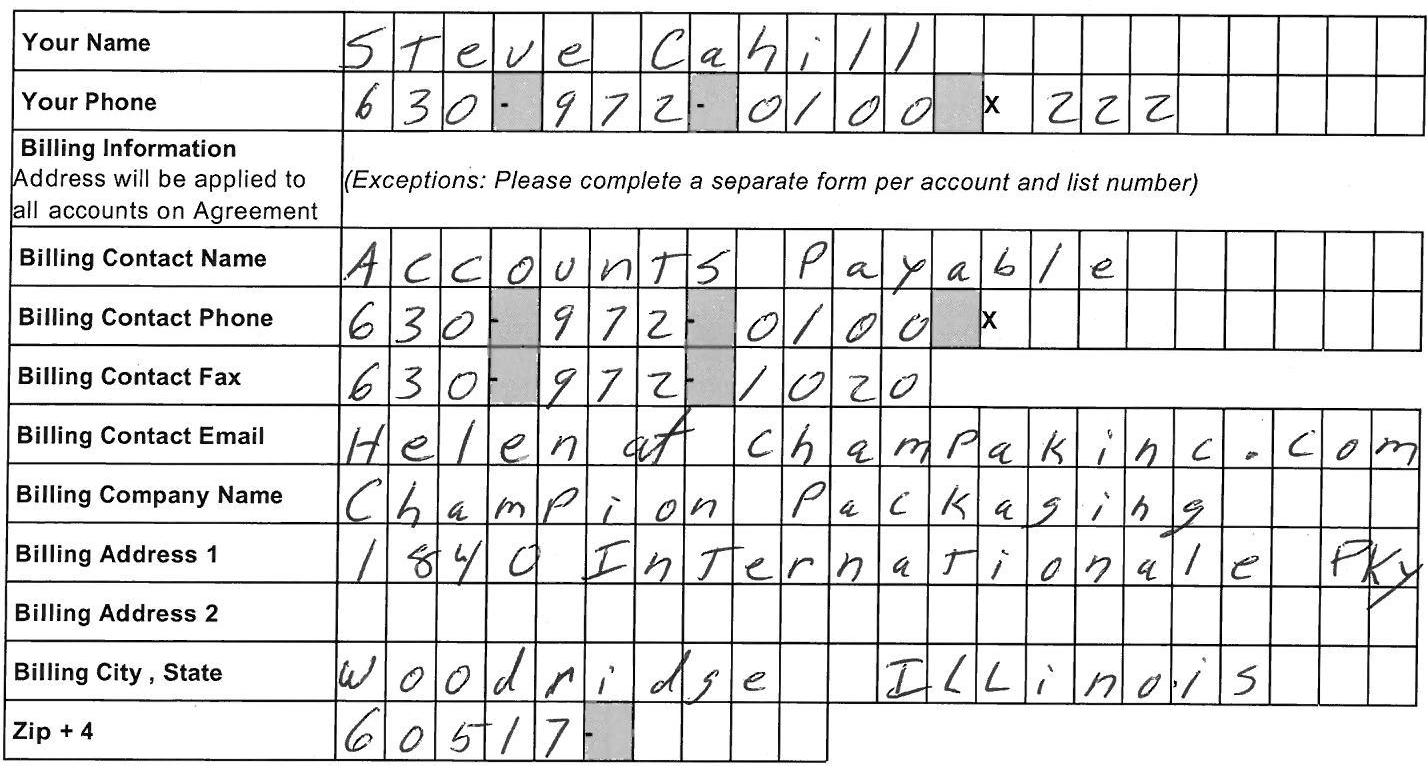 Your Name Steve Cahill
Your Phone 630-972-0100 x 222
Billing Information
Address will be applied to
all accounts on Agreement
(Exceptions: Please complete a separate form per account and list number)
Billing Contact Name Accounts Payable
Billing Contact Phone 630-972-0100 x
Billing Contact Fax 630-972-1020
Billing Contact Email Helen at ChamPakinc.com
Billing Company Name Champion Packaging
Billing Address 1 1840 Internationale PKy
Billing Address 2
Billing City , State Woodridge ILLinois
Zip + 4 60517-